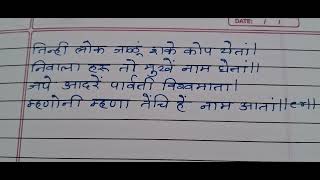 DATE: / /
तिन्ही लोक जाळूं शके कोप येतां।
निवाला हरू तो मुखें नाम घेतां।।
जपे आदरें पार्वती विश्वमाता।
म्हणोनी म्हणा तेंचि हें नाम आतां।।